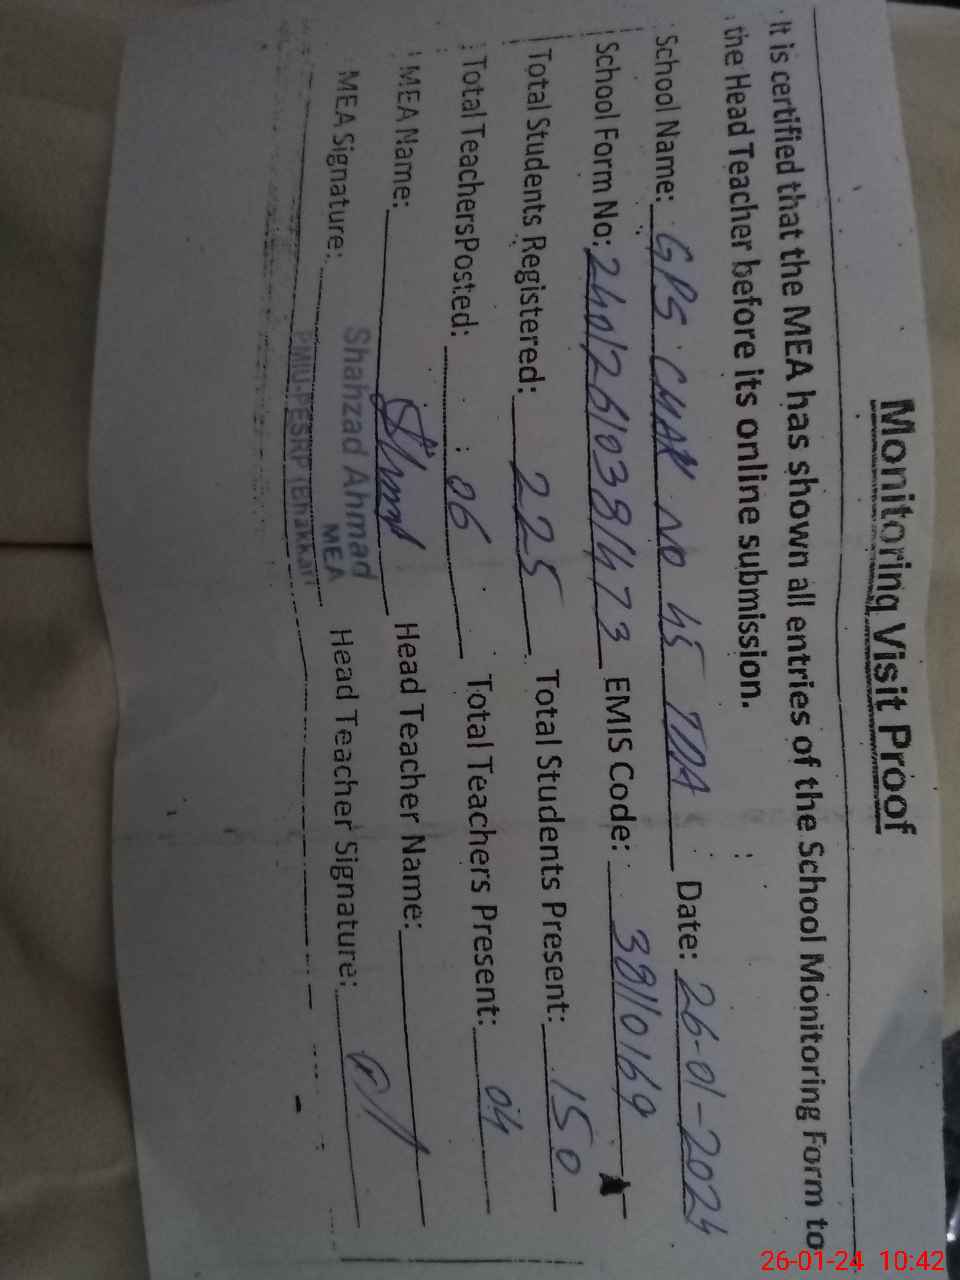 Monitoring Visit Proof
It is certified that the MEA has shown all entries of the School Monitoring Form to
the Head Teacher before its online submission.
School Name: GPS CHAK NO 45 TDA Date: 26-01-2024
School Form No: 240126103811473 EMIS Code: 38110169
Total Students Registered: 225 Total Students Present: 150
Total TeachersPosted: 06 Total Teachers Present: 04
MEA Name: Head Teacher Name:
MEA Signature: Head Teacher Signature:
Shahzad Ahmad
MEA
PMIU-PESRP (Bhakkar)
26-01-24 10:42